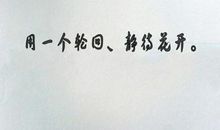 用一个轮回、静待花开。